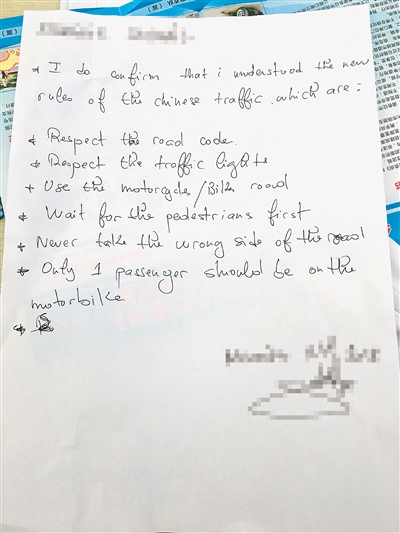 * I do confirm that i understood the new
rules of the chinese traffic which are :
* Respect the road code.
* Respect the traffic lights
+ Use the motorcycle/Bike road
* Wait for the pedestrians first
* Never take the wrong side of the road
* Only 1 passenger should be on the
motorbike
*